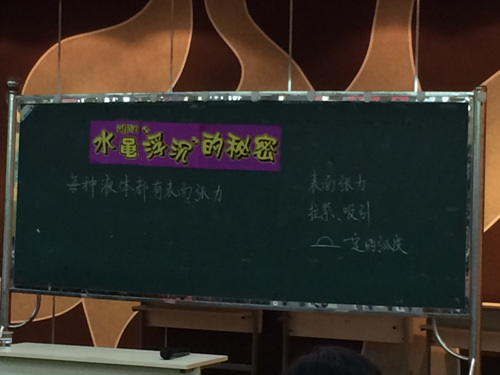 水黾"浮沉"的秘密
每种液体都有表面张力
表面张力
拉紧、吸引
一定的弧度